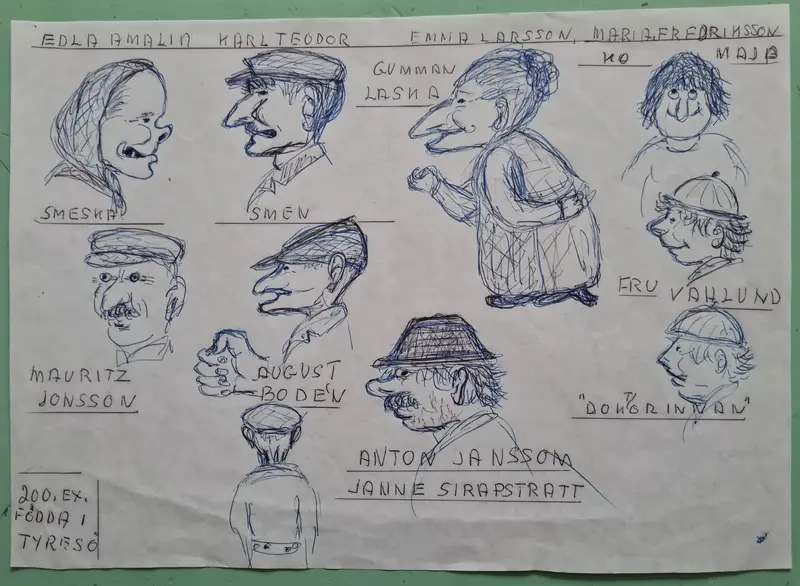 EDLA AMALIA KARL TEODOR EMMA LARSSON, MARIA, FREDRIKSSON
GUMMAN
LASKA
KO MAJA
SMESKA SMEN
FRU VAHLUND
MAURITZ
JONSSON
AUGUST
BODÉN
"DOKTORINNAN"
ANTON JANSSOM
JANNE SIRAPSTRATT
200. EX.
FÖDDA I
TYRESÖ